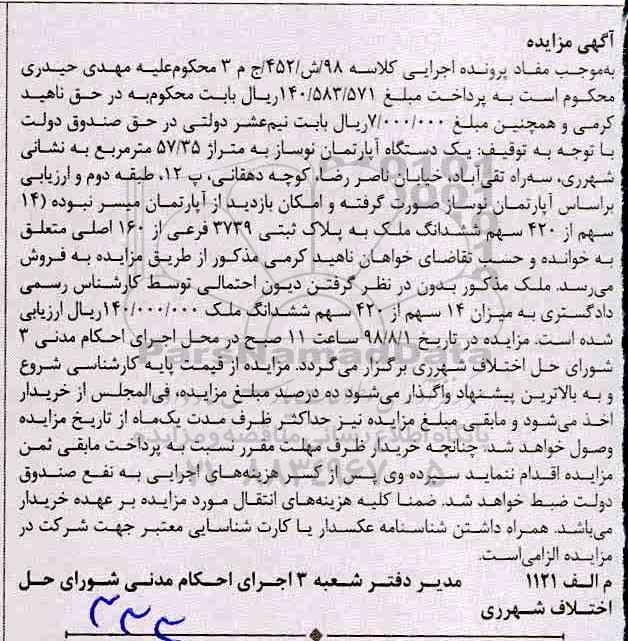 آگهی مزایده
به‌موجب مفاد پرونده اجرایی کلاسه ۹۸/ش/۴۵۲/ج م ۳ محکوم‌علیه مهدی حیدری
محکوم است به پرداخت مبلغ ۱۴۰/۵۸۳/۵۷۱ریال بابت محکوم‌به در حق ناهید
کرمی و همچنین مبلغ ۷/۰۰۰/۰۰۰ریال بابت نیم‌عشر دولتی در حق صندوق دولت
با توجه به توقیف: یک دستگاه آپارتمان نوساز به متراژ ۵۷/۳۵ مترمربع به نشانی
شهرری، سه‌راه تقی‌آباد، خیابان ناصر رضا، کوچه دهقانی، پ ۱۲، طبقه دوم و ارزیابی
براساس آپارتمان نوساز صورت گرفته و امکان بازدید از آپارتمان میسر نبوده (۱۴
سهم از ۴۲۰ سهم ششدانگ ملک به پلاک ثبتی ۳۷۳۹ فرعی از ۱۶۰ اصلی متعلق
به خوانده و حسب تقاضای خواهان ناهید کرمی مذکور از طریق مزایده به فروش
می‌رسد. ملک مذکور بدون در نظر گرفتن دیون احتمالی توسط کارشناس رسمی
دادگستری به میزان ۱۴ سهم از ۴۲۰ سهم ششدانگ ملک ۱۴۰/۰۰۰/۰۰۰ریال ارزیابی
شده است. مزایده در تاریخ ۹۸/۸/۱ ساعت ۱۱ صبح در محل اجرای احکام مدنی ۳
شورای حل اختلاف شهرری برگزار می‌گردد. مزایده از قیمت پایه کارشناسی شروع
و به بالاترین پیشنهاد واگذار می‌شود ده درصد مبلغ مزایده، فی‌المجلس از خریدار
اخذ می‌شود و مابقی مبلغ مزایده نیز حداکثر ظرف مدت یک‌ماه از تاریخ مزایده
وصول خواهد شد. چنانچه خریدار ظرف مهلت مقرر نسبت به پرداخت مابقی ثمن
مزایده اقدام ننماید سپرده وی پس از کسر هزینه‌های اجرایی به نفع صندوق
دولت ضبط خواهد شد. ضمنا کلیه هزینه‌های انتقال مورد مزایده بر عهده خریدار
می‌باشد. همراه داشتن شناسنامه عکسدار یا کارت شناسایی معتبر جهت شرکت در
مزایده الزامی‌است.
م الف ۱۱۲۱ مدیر دفتر شعبه ۳ اجرای احکام مدنی شورای حل
اختلاف شهرری
ParsNamadData